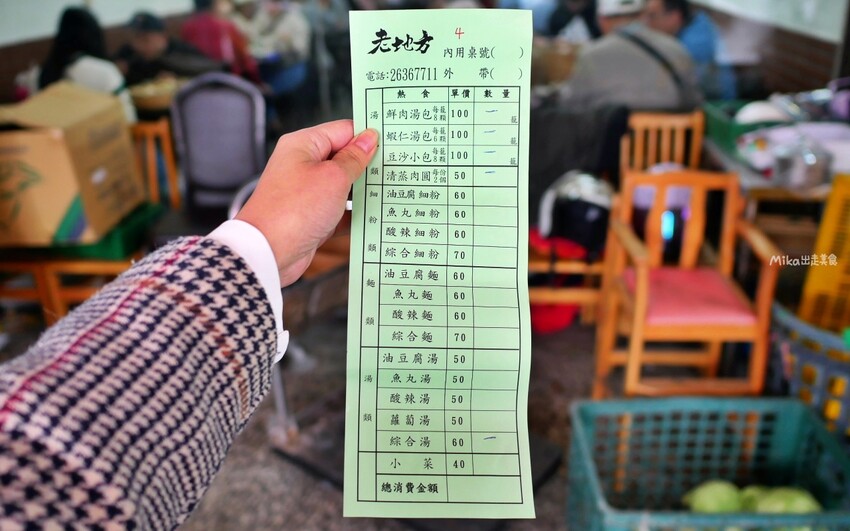 老地方
4
內用桌號( )
電話:26367711 外 帶( )
熱食 單價 數量
湯包類
鮮肉湯包 每籠8顆 100 一 籠
蝦仁湯包 每籠6顆 100 一 籠
豆沙小包 每籠8顆 100 一 籠
清蒸肉圓 每份2個 50 一
細粉類
油豆腐細粉 60
魚丸細粉 60
酸辣細粉 60
綜合細粉 70
麵類
油豆腐麵 60
魚丸麵 60
酸辣麵 60
綜合麵 70
湯類
油豆腐湯 50
魚丸湯 50
酸辣湯 50
蘿蔔湯 50
綜合湯 60 一
小菜 40
總消費金額
Mika出走美食